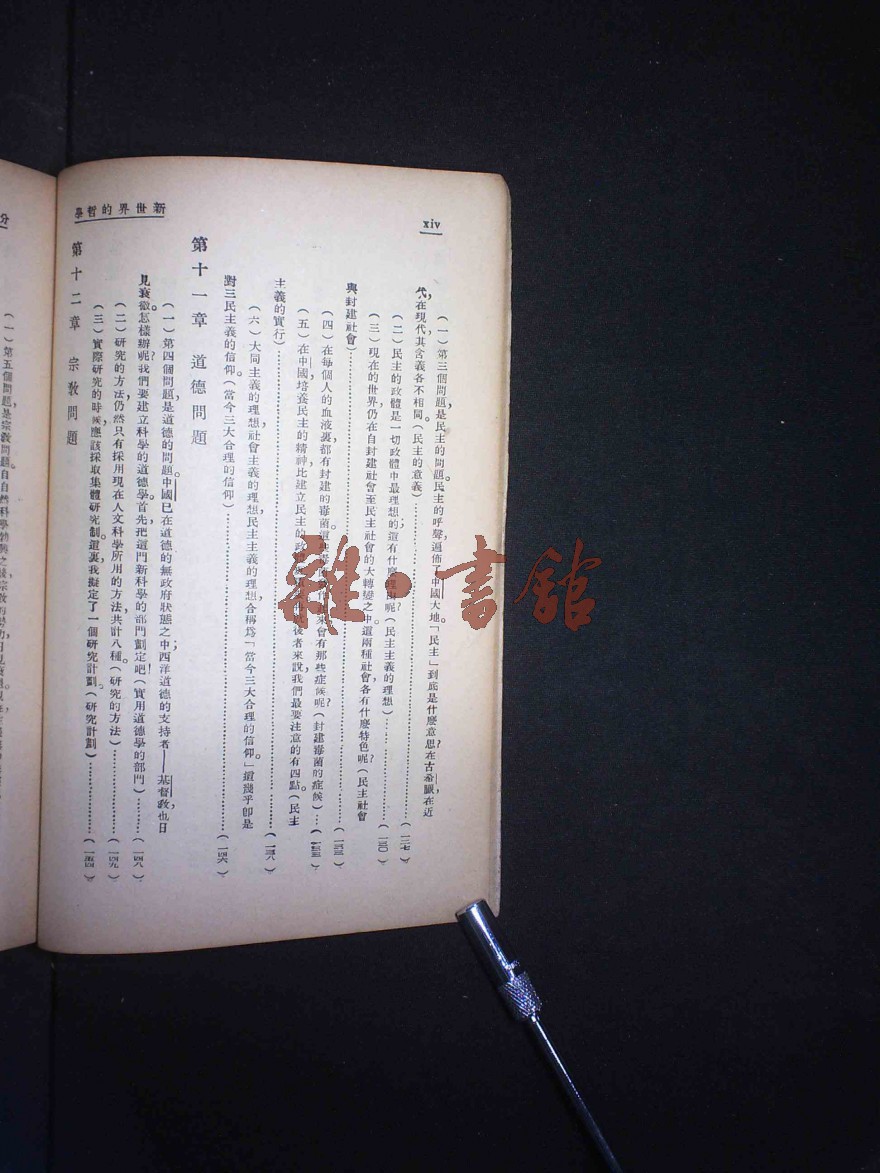 xiv
新世界的哲學
(一)第三個問題,是民主的問題。民主的呼聲遍佈了中國大地「民主」到底是什麼意思?在古希臘,在近
代,在現代,其含義各不相同。(民主的意義)……(一二七)
(二)民主的政體是一切政體中最理想的;這有什麼理由呢?(民主主義的理想)……(一三〇)
(三)現在的世界,仍在自封建社會至民主社會的大轉變之中。這兩種社會,各有什麼特色呢?(民主社會
與封建社會)……(一三三)
(四)在每個人的血液裏,都有封建的毒菌。這些毒菌 來會有那些症候呢?(封建毒菌的症候)……
(五)在中國,培養民主的精神,比建立民主的政體 後者來說,我們最要注意的有四點。(民主
主義的實行)……(一三八)
(六)大同主義的理想,社會主義的理想,民主主義的理想,合稱爲「當今三大合理的信仰。」這幾乎卽是
對三民主義的信仰。(當今三大合理的信仰)……(一四六)
第十一章 道德問題
(一)第四個問題,是道德的問題。中國已在道德的無政府狀態之中;西洋道德的支持者——基督敎,也日
見衰微。怎樣辦呢?我們要建立科學的道德學。首先,把這門新科學的部門劃定吧!(實用道德學的部門)……(一四八)
(二)研究的方法,仍然只有採用現在人文科學所用的方法,共計八種。(研究的方法)……(一四九)
(三)實際研究的時候,應該採取集體研究制。這裏我擬定了一個研究計劃。(研究計劃)……(一五四)
第十二章 宗敎問題
分
(一)第五個問題,是宗敎問題。自自然科學勃興之後,宗敎的勢力日見
雜·書館